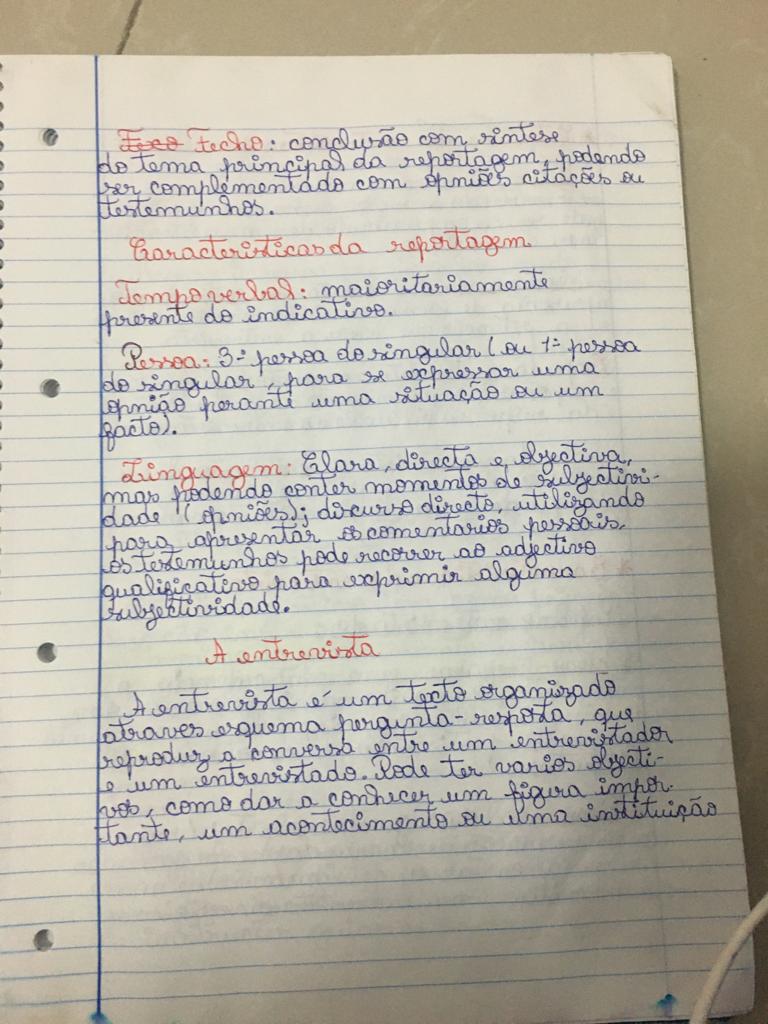 Foco Fecho: conclusão com sintese
do tema principal da reportagem, podendo
ser complementado com opniões citações ou
testemunhos.
Caracteristicas da reportagem
Tempo verbal: maioritariamente
presente do indicativo.
Pessoa: 3ª pessoa do singular (ou 1ª pessoa
do singular, para se expressar uma
opnião perante uma situação ou um
facto).
Linguagem: Clara, directa e objectiva,
mas podendo conter momentos de subjectivi-
dade (opniões); discurso directo, utilizando
para apresentar os comentarios pessoais,
os testemunhos pode recorrer ao adjectivo
qualificativo para exprimir alguma
subjectividade.
A entrevista
A entrevista é um texto organizado
atraves esquema pergunta-resposta, que
reproduz a conversa entre um entrevistador
e um entrevistado. Pode ter varios objecti-
vos, como dar a conhecer um figura impor-
tante, um acontecimento ou uma instituição